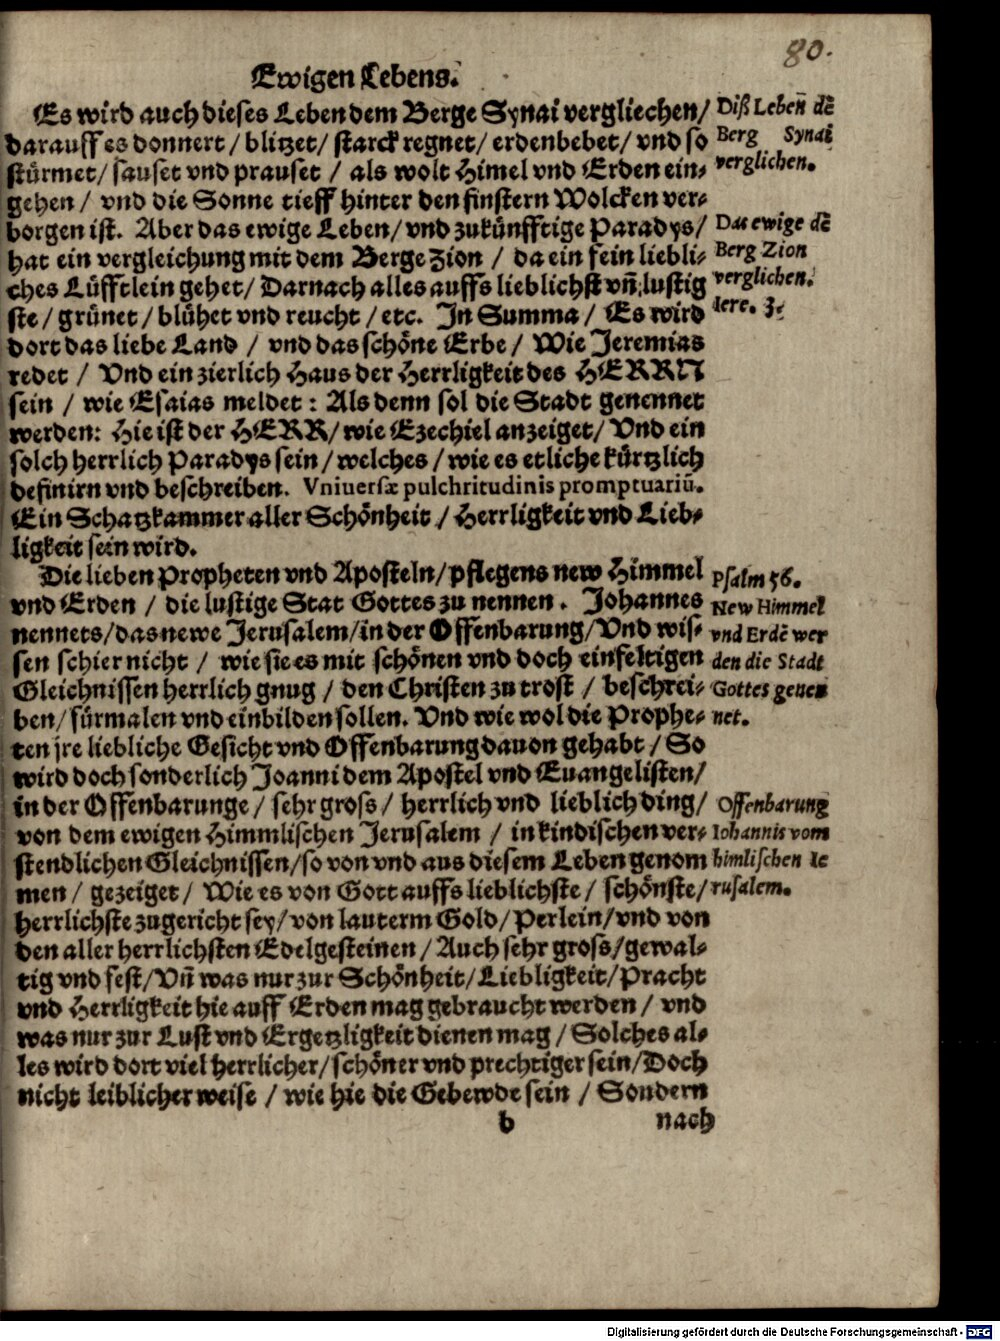 80.
Ewigen Lebens.
Es wird auch dieses Leben dem Berge Synai vergliechen/
darauff es donnert / blitzet / starck regnet / erdenbebet / vnd so
stürmet / sauset vnd prauset / als wolt Himel vnd Erden ein-
gehen / vnd die Sonne tieff hinter den finstern Wolcken ver-
borgen ist. Aber das ewige Leben / vnd zukünfftige Paradys /
hat ein vergleichung mit dem Berge Zion / da ein fein liebli-
ches Lüfftlein gehet / Darnach alles auffs lieblichst vñ lustig
ste / grünet / blühet vnd reucht / etc. In Summa / Es wird
dort das liebe Land / vnd das schöne Erbe / Wie Jeremias
redet / Vnd ein zierlich Haus der Herrligkeit des HERRN
sein / wie Esaias meldet : Als denn sol die Stadt genennet
werden: Hie ist der HERR / wie Ezechiel anzeiget / Vnd ein
solch herrlich Paradys sein / welches / wie es etliche kürtzlich
definirn vnd beschreiben. Vniuersæ pulchritudinis promptuariū.
Ein Schatzkammer aller Schönheit / Herrligkeit vnd Lieb-
ligkeit sein wird.
Die lieben Propheten vnd Aposteln / pflegens new Himmel
vnd Erden / die lustige Stat Gottes zu nennen. Johannes
nennets / das newe Jerusalem / in der Offenbarung / Vnd wis-
sen schier nicht / wie sie es mit schönen vnd doch einfeltigen
Gleichnissen herrlich gnug / den Christen zu trost / beschrei-
ben / fürmalen vnd einbilden sollen. Vnd wie wol die Prophe-
ten jre liebliche Gesicht vnd Offenbarung dauon gehabt / So
wird doch sonderlich Joanni dem Apostel vnd Euangelisten /
in der Offenbarunge / sehr gross / herrlich vnd lieblich ding /
von dem ewigen Himmlischen Jerusalem / in kindischen ver-
stendlichen Gleichnissen / so von vnd aus diesem Leben genom
men / gezeiget / Wie es von Gott auffs lieblichste / schönste /
herrlichste zugericht sey / von lauterm Gold / Perlein / vnd von
den aller herrlichsten Edelgesteinen / Auch sehr gross / gewal-
tig vnd fest / Vñ was nur zur Schönheit / Liebligkeit / Pracht
vnd Herrligkeit hie auff Erden mag gebraucht werden / vnd
was nur zur Lust vnd Ergetzligkeit dienen mag / Solches al-
les wird dort viel herrlicher / schöner vnd prechtiger sein / Doch
nicht leiblicher weise / wie hie die Gebewde sein / Sondern
b nach
Diß Lebeñ dē
Berg Synai
verglichen.
Das ewige dē
Berg Zion
verglichen.
Iere. 3.
Psalm 56.
New Himmel
vnd Erdē wer
den die Stadt
Gottes genen
net.
Offenbarung
Iohannis vom
himlischen Ie
rusalem.
Digitalisierung gefördert durch die Deutsche Forschungsgemeinschaft - DFG